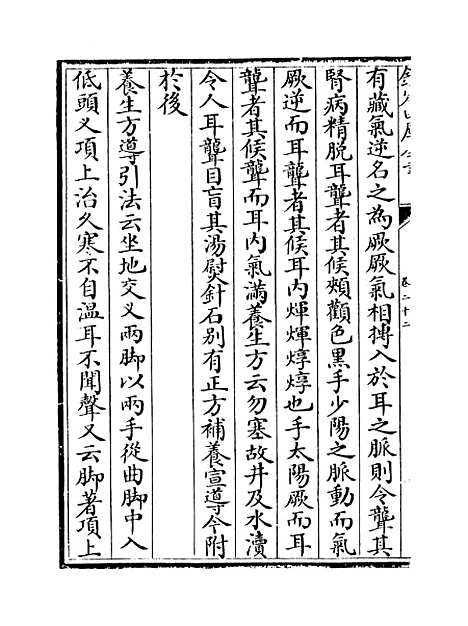 卷二十二
有藏氣逆名之為厥厥氣相搏入於耳之脈則令聾其
腎病精脫耳聾者其候頰顴色黑手少陽之脈動而氣
厥逆而耳聾者其候耳内煇煇焞焞也手太陽厥而耳
聾者其候聾而耳内氣滿養生方云勿塞故井及水瀆
令人耳聾目盲其湯熨針石别有正方補養宣導今附
於後
養生方導引法云坐地交叉兩脚以兩手從曲脚中入
低頭叉項上治久寒不自溫耳不聞聲又云脚著項上